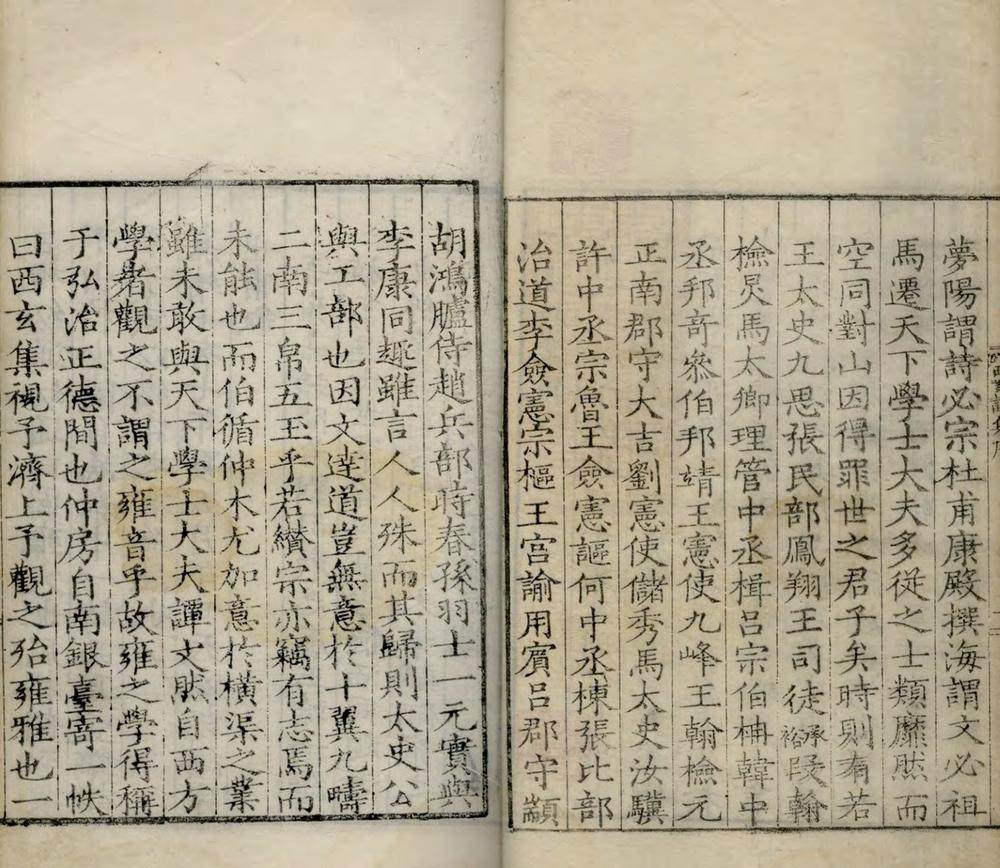 夢陽謂詩必宗杜甫康殿撰海謂文必祖
馬遷天下學士大夫多從之士類靡然而
空同對山因得罪世之君子矣時則有若
王太史九思張民部鳳翔王司徒承裕段翰
檢炅馬太卿理管中丞楫呂宗伯柟韓中
丞邦奇叅伯邦靖王憲使九峰王翰檢元
正南郡守大吉劉憲使儲秀馬太史汝驥
許中丞宗魯王僉憲謳何中丞棟張比部
治道李僉憲宗樞王宫諭用賓呂郡守顓
胡鴻臚侍趙兵部時春孫羽士一元實與
李康同趣雖言人人殊而其歸則太史公
與工部也因文逹道豈無意於十翼九疇
二南三帛五玉乎若纉宗亦竊有志焉而
未能也而伯循仲木尤加意於橫渠之業
雖未敢與天下學士大夫譚文然自西方
學者觀之不謂之雍音乎故雍之學得稱
于弘治正德間也仲房自南銀臺寄一帙
曰西玄集視予濟上予觀之殆雍雅也一